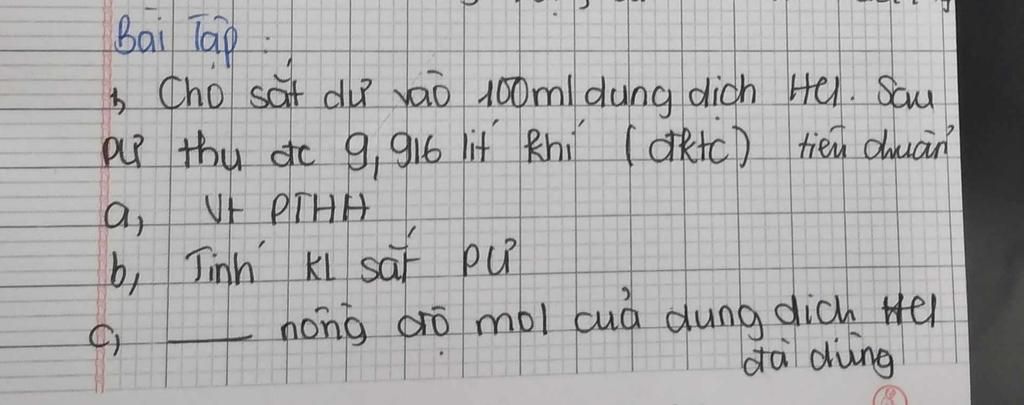 Bài Tập :
3 Cho sắt dư vào 100ml dung dịch HCl. Sau
pư thu đc 9,916 lít khí (đktc) tiêu chuẩn
a, Vt PTHH
b, Tính kl sắt pư
c, —— nồng độ mol của dung dịch HCl
đã dùng